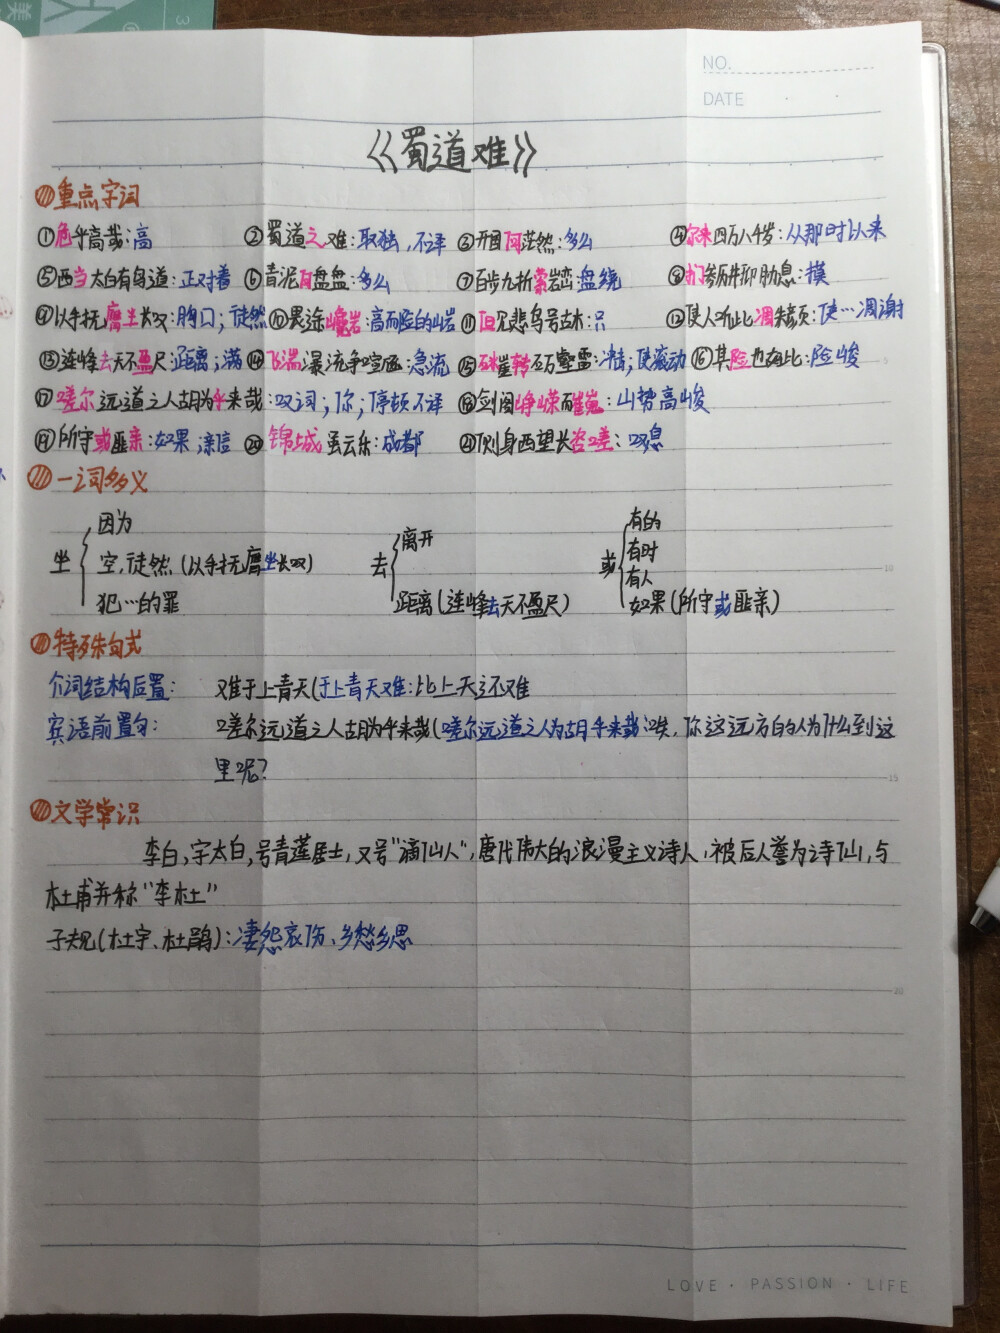 NO.
DATE
《蜀道难》
重点字词
①危乎高哉:高 ②蜀道之难:取独,不译 ③开国何茫然:多么 ④尔来四万八千岁:从那时以来
⑤西当太白有鸟道:正对着 ⑥青泥何盘盘:多么 ⑦百步九折萦岩峦:盘绕 ⑧扪参历井仰胁息:摸
⑨以手抚膺坐长叹:胸口;徒然 ⑩畏途巉岩:高而险的山岩 ⑪但见悲鸟号古木:只 ⑫使人听此凋朱颜:使…凋谢
⑬连峰去天不盈尺:距离;满 ⑭飞湍瀑流争喧豗:急流 ⑮砯崖转石万壑雷:冲击;使滚动 ⑯其险也每此:险峻
⑰嗟尔远道之人胡为乎来哉:叹词;你;停顿不译 ⑱剑阁峥嵘而崔嵬:山势高峻
⑲所守或匪亲:如果;亲信 ⑳锦城虽云乐:成都 ㉑侧身西望长咨嗟:叹息
一词多义
因为
坐 空,徒然(以手抚膺坐长叹)
犯…的罪
去 离开
距离(连峰去天不盈尺)
或 有的
有时
有人
如果(所守或匪亲)
特殊句式
介词结构后置: 难于上青天(于上青天难:比上天还难
宾语前置句: 嗟尔远道之人胡为乎来哉(嗟尔远道之人为胡乎来哉:唉,你这远方的人为什么到这
里呢?
文学常识
李白,字太白,号青莲居士,又号"谪仙人",唐代伟大的浪漫主义诗人,被后人誉为诗仙,与
杜甫并称"李杜"
子规(杜宇、杜鹃):凄怨哀伤、乡愁乡思
5
10
15
20
LOVE · PASSION · LIFE